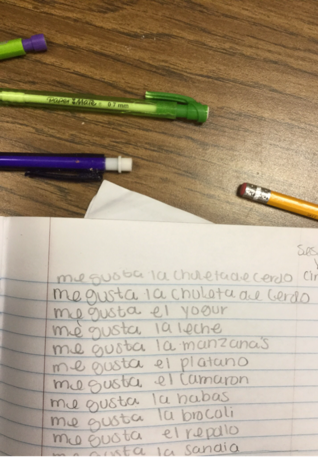 Paper Mate 0.7 mm
me gusta la chuleta de cerdo
me gusta la chuleta de Cerdo
me gusta el yogur
me gusta la leche
me gusta la manzanas
me gusta el platano
me gusta el Camaron
me gusta la habas
me gusta la brocoli
me gusta el repollo
me gusta la sandia